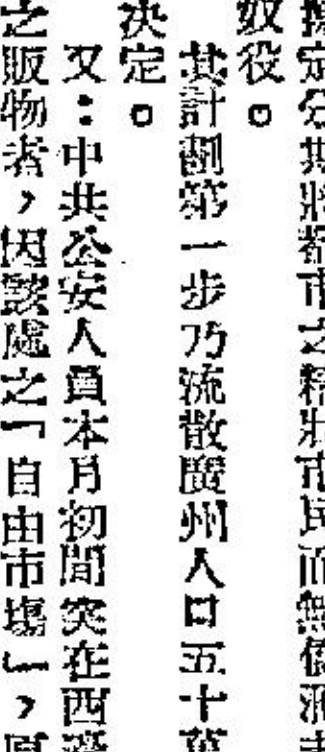 定分期將都市之精壯市民而無價
奴役。
其計劃第一步乃流散廣州人口五十萬
決定。
又：中共公安人員本月初間突在西
之販物者，因該處之「自由市場」，原